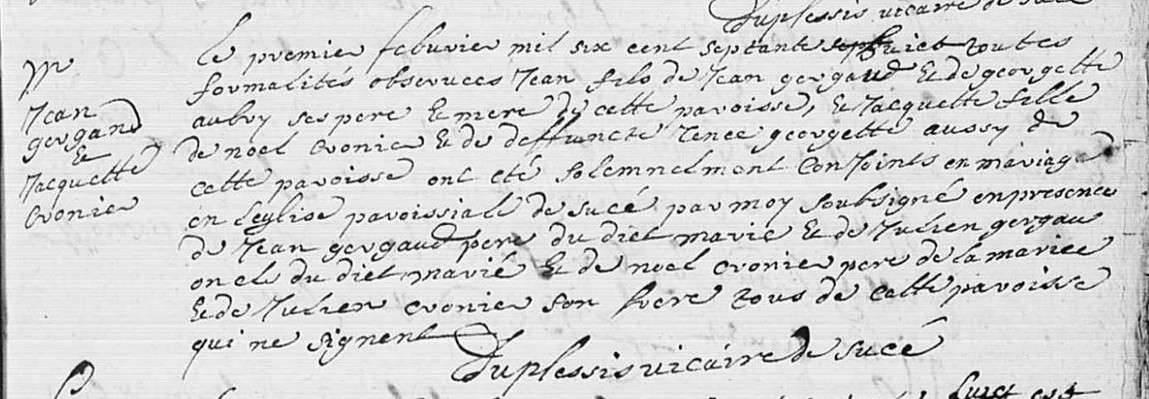 Duplessis vicaire de sucé
le premier febuvrier mil six cent septante huict toutes
formalités observees Jean fils de Jean gergaud & de georgette
aubry ses pere & mere de cette paroisse, & Jacquette fille
de noel cronier & de deffuncte renee georgette aussy de
cette paroisse ont eté solemnelment conjoints en mariage
en leglise paroissialle de sucé par moy soubsigné en presence
de Jean gergaud pere du dict marié & de Julien gergau
oncle du dict marié & de noel cronier pere de la mariee
& de Julien cronier son frere tous de cette paroisse
qui ne signent
Duplessis vicaire de sucé
Jean
gergaud
&
Jacquette
cronier